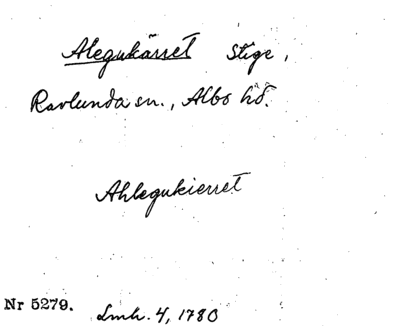 Alegukärret Stige,
Ravlunda sn., Albo hd.
Ahlegukierret
Nr 5279. Lmh. 4, 1780